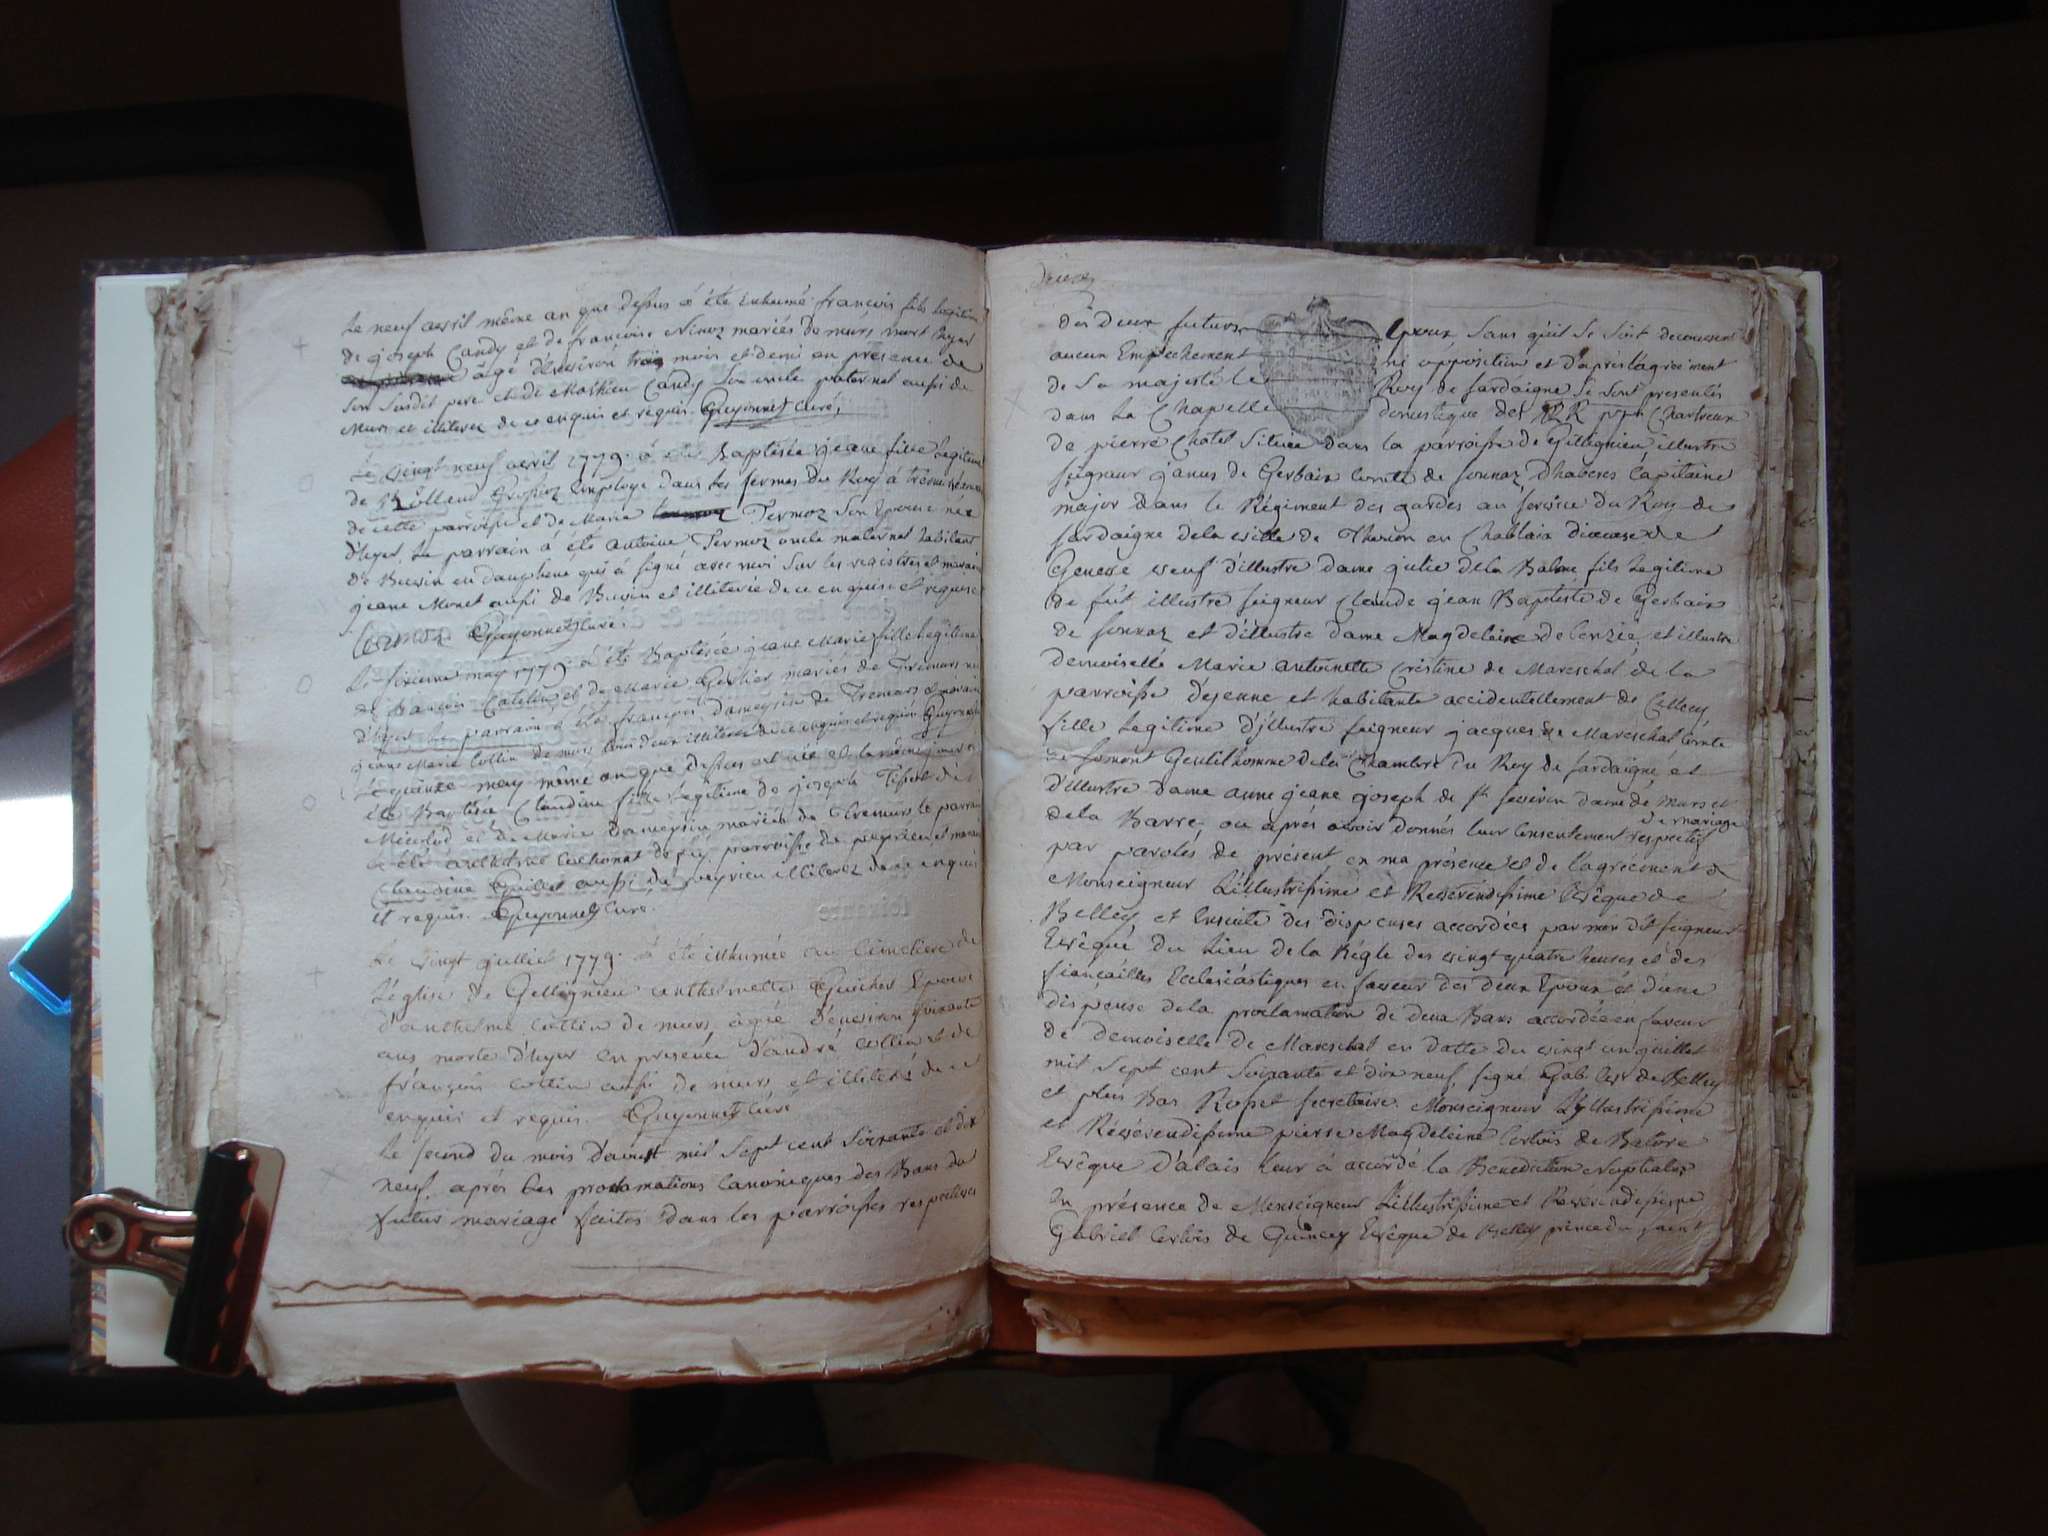 Le neuf avril même an que dessus à été inhumé françois fils legitime
de joseph Candy et de françoise Ninoz mariés de murs, mort hyer
âgé d'environ trois mois et demi en présence de
son susdit pere et de Mathieu Candy son oncle paternel aussi de
Murs et illiterez de ce enquis et requis. Guyonnet Curé,
Le vingt neuf avril 1779. à été Baptisée jeane fille legitime
de employé dans les fermes du Roy à
de cette parroisse et de Marie Termoz son Epouse née
d'hyer, Le parrain à été antoine Termoz oncle maternel habitant
de Buvin en dauphiné qui à signé avec moi sur les registres et maraine
jeane Monet aussi de Buvin et illiterée de ce enquise et requise
Guyonnet Curé.
Le sixieme may 1779. à été Baptisée jeane Marie fille legitime
de françois Catelin et de Marie mariés de Tremurs née
d'hyer Le parrain à été françois Dameysin de Tremurs et maraine
jeane Marie Collin de murs, tous deux illiterés de ce enquis et requis Guyonnet
Le quinze may même an que dessus est née et la même jour à
été Baptisée Claudine fille legitime de joseph Tissot dit
Micolod et de Marie Dameysin mariés de Tremurs le parrain
à été anthelme parroisse de peyrieu, et maraine
Claudine Guillet aussi de peyrieu illiterez de ce enquis
et requis. Guyonnet Curé.
Le vingt juillet 1779. à été inhumée au Cimetiere de
L'eglise de Gellignieu anthelmette Guicher Epouse
d'anthelme Collin de murs, âgée d'environ soixante
ans morte d'hyer en presence d'andré Collin et de
françois Collin aussi de murs et illiterés de ce
enquis et requis. Guyonnet Curé
Le second du mois d'aoust mil sept cent soixante et dix
neuf, après les proclamations Canoniques des Bans du
futur mariage faites dans les parroisses respectives
des deux futurs Epoux, sans qu'il se soit decouvert
aucun Empechement ni opposition et d'après l'agreément
de Sa majesté le Roy de sardaigne se sont presentés
dans la Chapelle domestique des RR pph Chartreux
de pierre Chatel située dans la parroisse de Gellignieu, illustre
seigneur janus de Gerbaix Comte de sonnaz, d'haberes Capitaine
major dans le Régiment des gardes au service du Roy de
sardaigne de la ville de Thonon en Chablaix diocese de
Geneve veuf d'illustre dame julie de la Balme fils legitime
de feüt illustre seigneur Claude jean Baptiste de Gerbaix
de sonnaz et d'illustre dame Magdeleine de Cerizié, et illustre
demoiselle Marie antoinette Cristine de Mareschal de la
parroisse d'ejenne et habitante accidentellement de
fille legitime d'illustre seigneur jacques de Mareschal Comte
de somont Gentilhomme de la Chambre du Roy de sardaigne, et
d'illustre dame anne jeane joseph de st severin dame de murs et
de la Barre, ou après avoir donnés leur Consentement respectif
de mariage
par paroles de présent en ma présence et de l'agrèement de
Monseigneur L'illustrissime et Reverendissime Evêque de
Belley et Ensuite des dispenses accordées par mon dit seigneur
Evêque du Lieu de la Régle des vingt quatre heures et des
fiançailles Ecclesiastiques en faveur des deux Epoux et d'une
dispense de la proclamation de deux Bans accordée en faveur
de demoiselle de Mareschal en datte du vingt un juillet
mil sept cent soixante et dix neuf, signé Gab. Ev. de Belley
et plus Bas Ropet secretaire. Monseigneur L'yllustrissime
et Révérendissime pierre Magdeleine Cortois de Balore
Evêque d'alais leur à accordé la Benediction Nuptiale,
En présence de Monseigneur L'illustrissime et Reverendissime
Gabriel Cortois de Quincey Evêque de Belley prince du saint